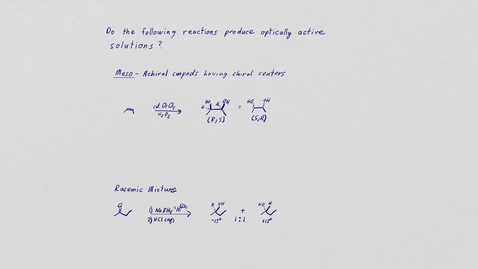 Do the following reactions produce optically active
solutions?
Meso - Achiral cmpnds having chiral centers
H₂O₂
OH
HO OH
(R,S) = (S,R)
Racemic Mixture
O
1) NaBH₄
2) HCl (aq)
H OH + HO H
-13° 1:1 +13°